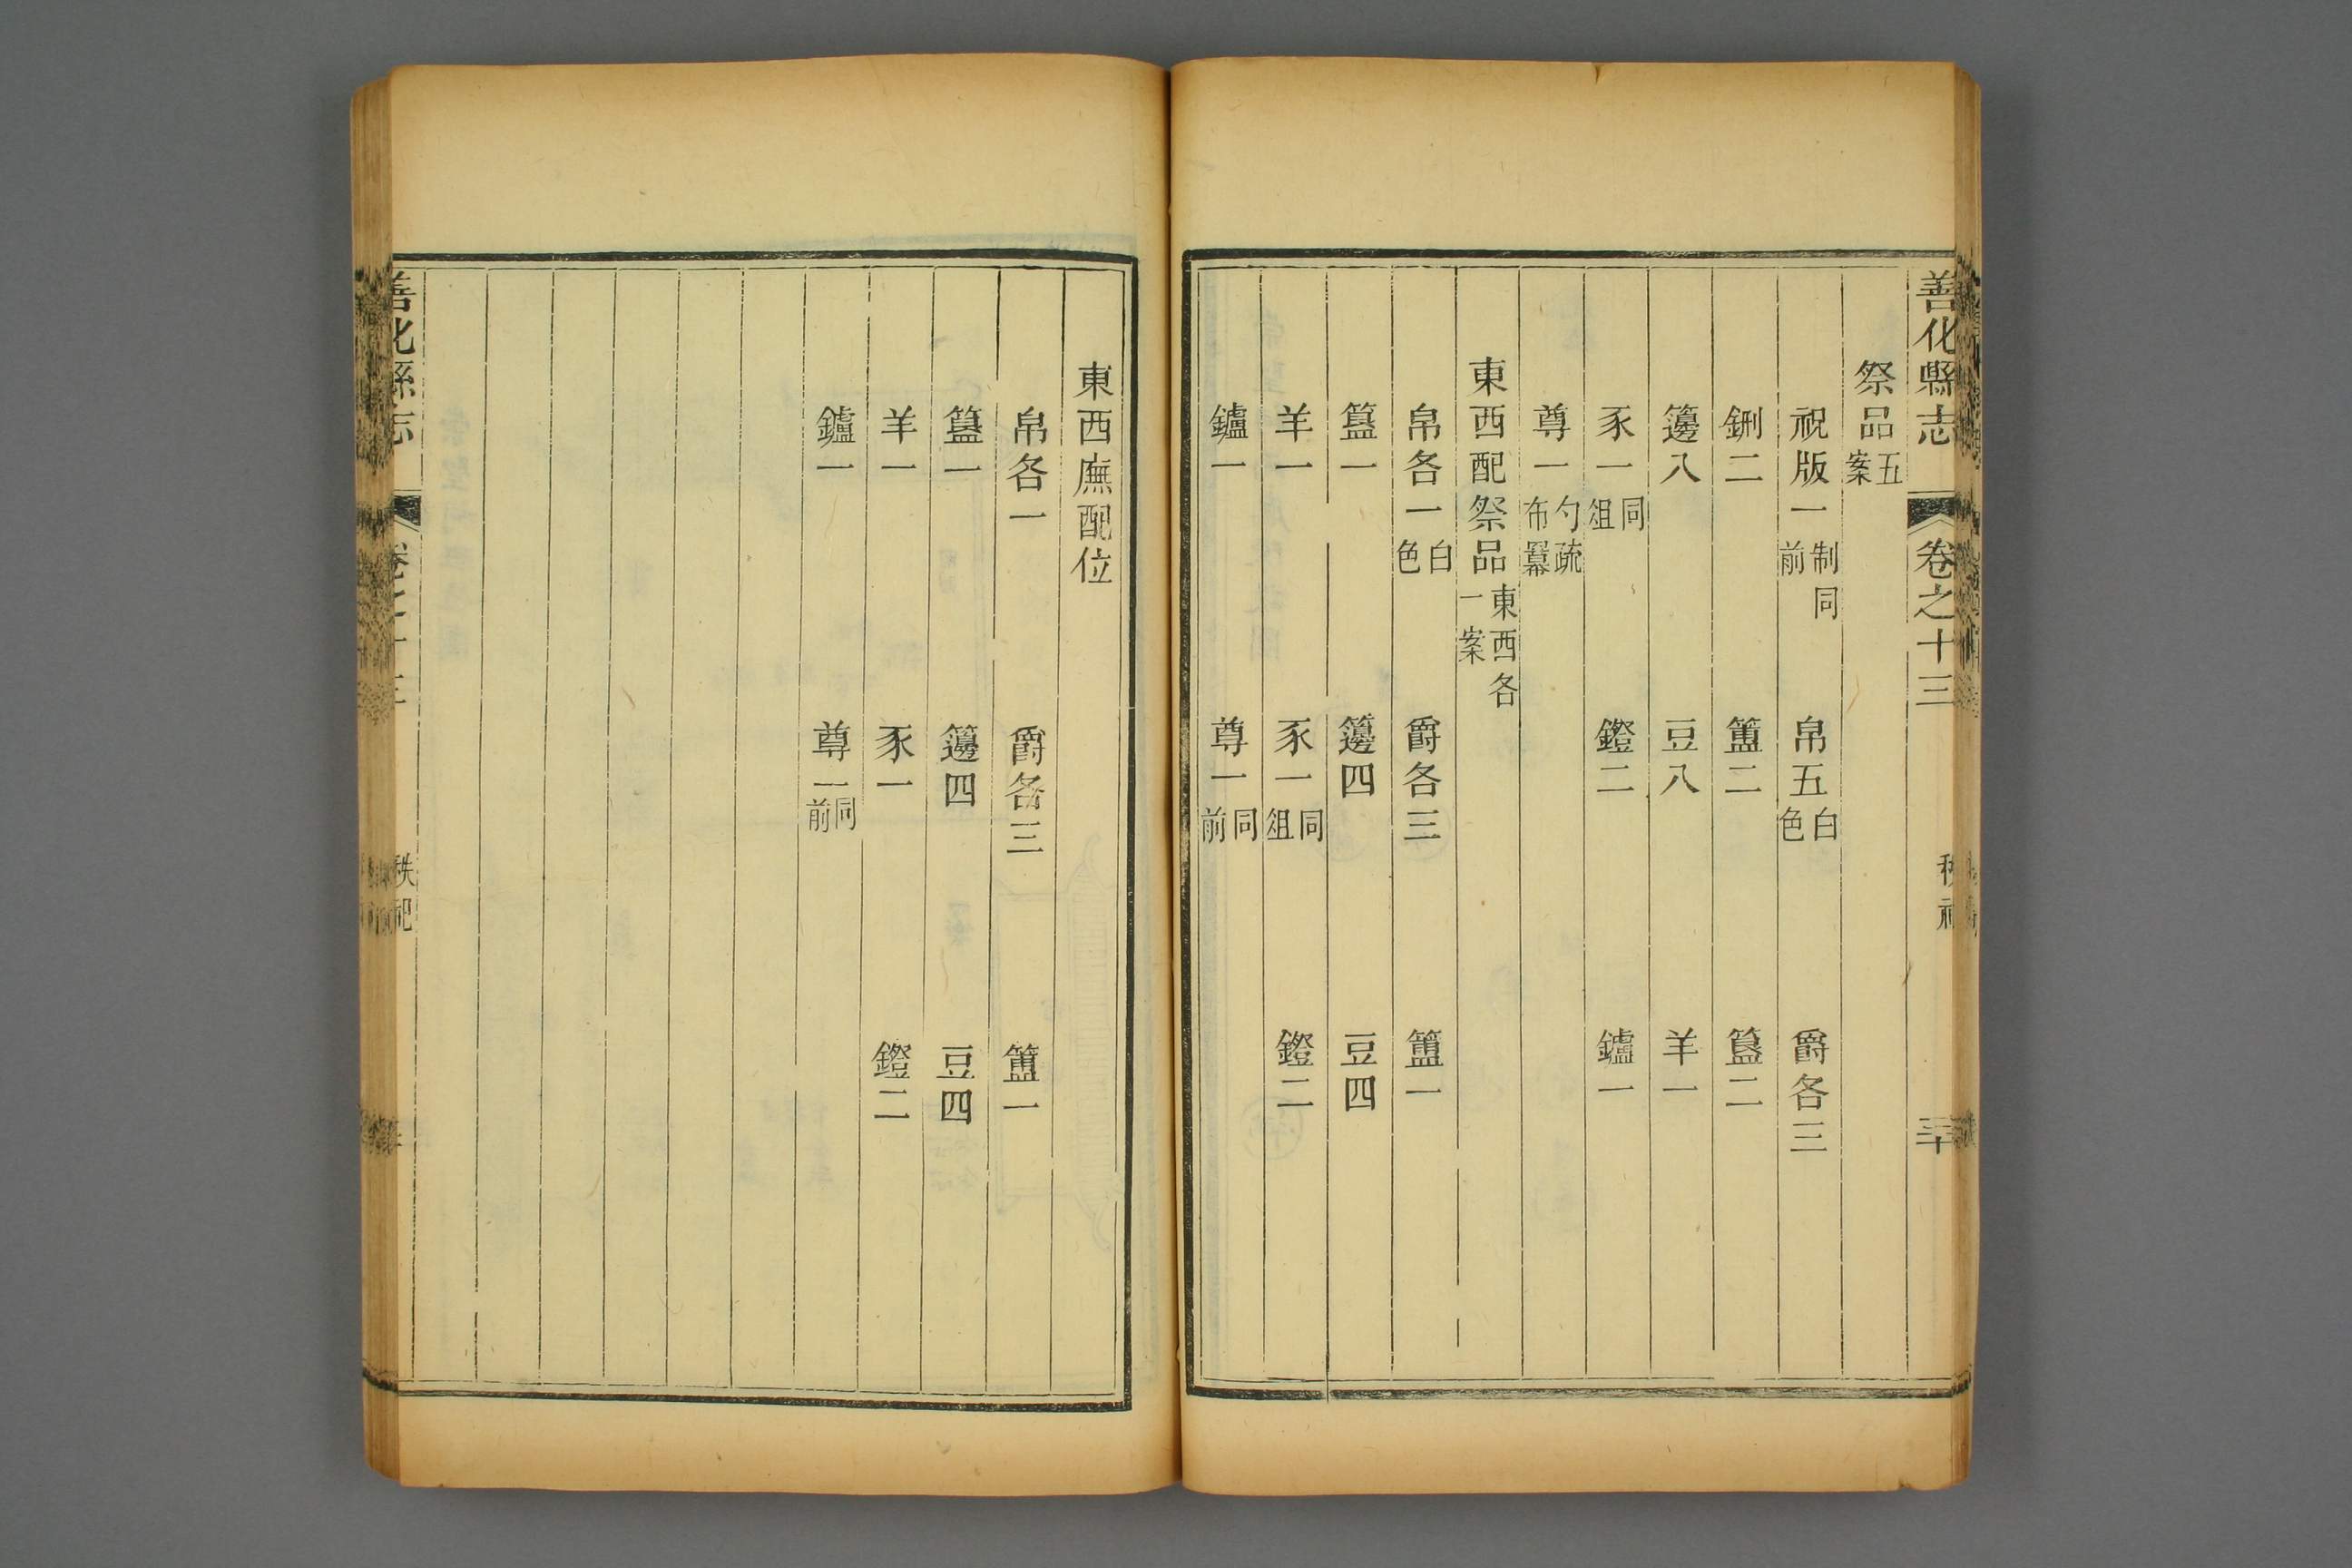 善化縣志 卷之十三 秩祀 三十
祭品五案
祝版一制同前 帛五白色 爵各三
鉶二 簠二 簋二
籩八 豆八 羊一
豕一同俎 鐙二 鑪一
尊一勺疏布羃
東西配祭品東西各一案
帛各一白色 爵各三 簠一
簋一 籩四 豆四
羊一 豕一同俎 鐙二
鑪一 尊一同前
東西廡配位
帛各一 爵各三 簠一
簋一 籩四 豆四
羊一 豕一 鐙二
鑪一 尊一同前
善化縣志 卷之十三 秩祀